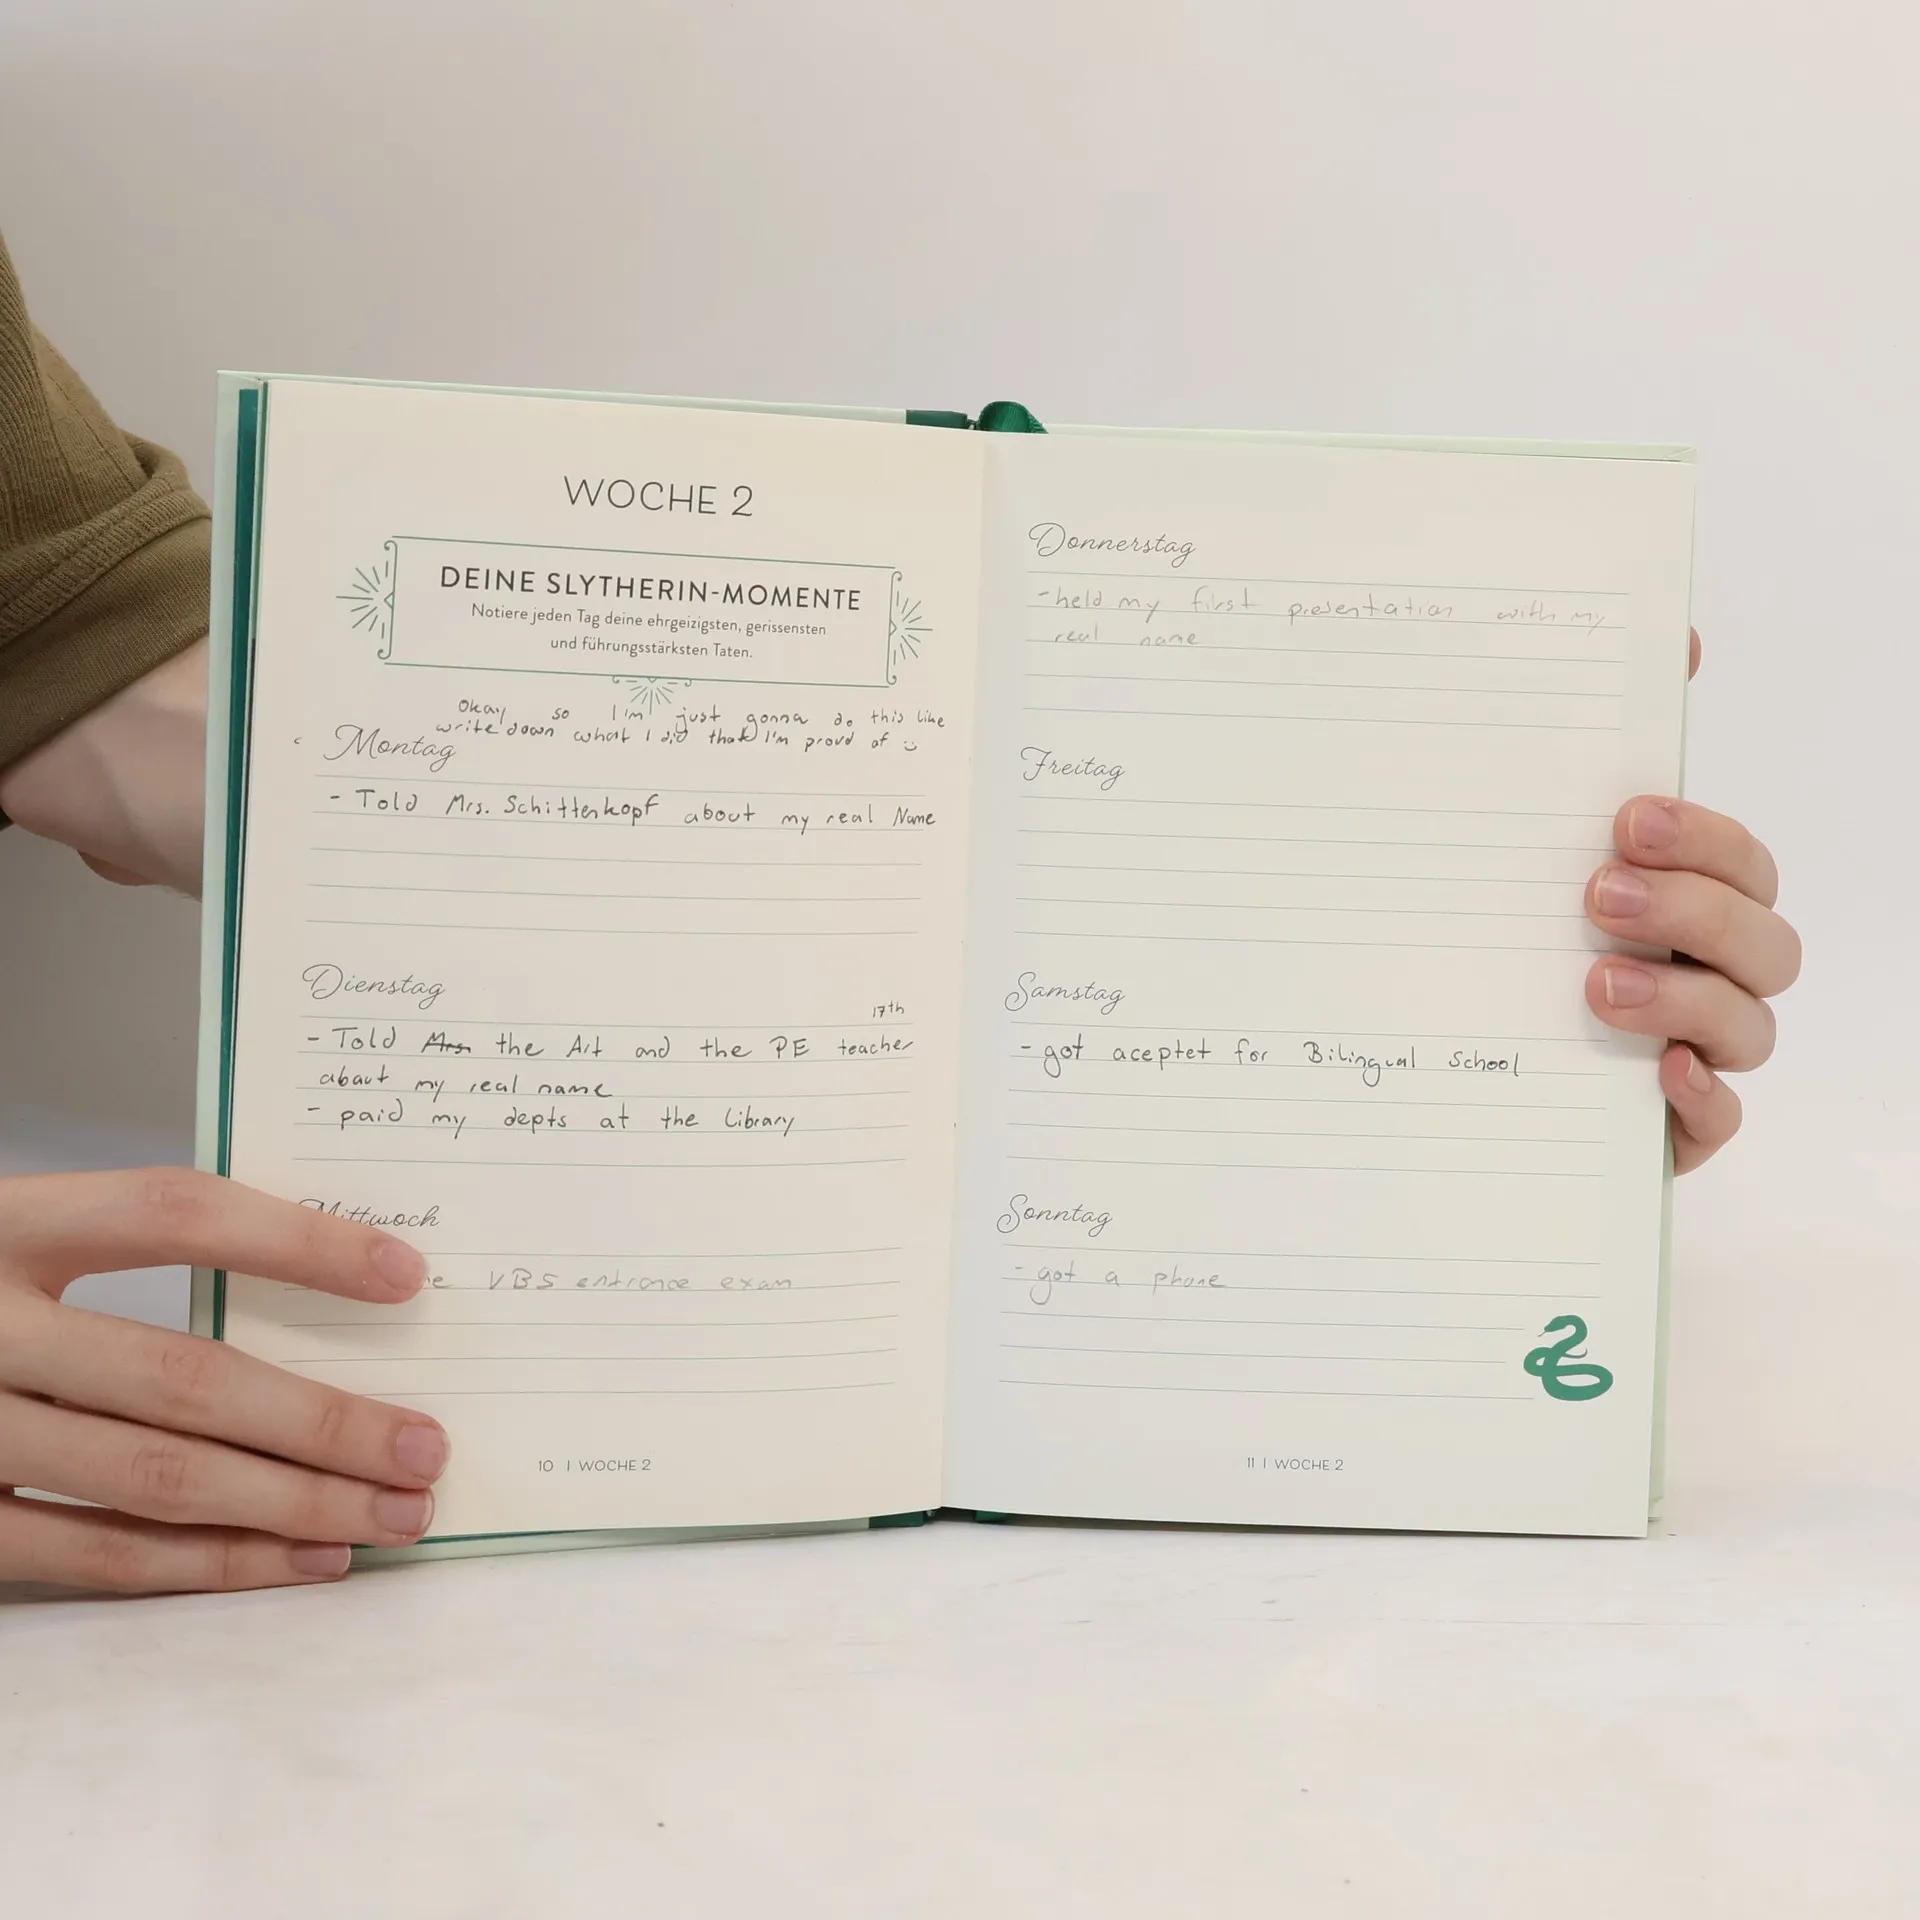 WOCHE 2
DEINE SLYTHERIN-MOMENTE
Notiere jeden Tag deine ehrgeizigsten, gerissensten
und führungsstärksten Taten.
Okay so I'm just gonna do this like
write down what I did that I'm proud of :)
Montag
- Told Mrs. Schittenkopf about my real Name
Dienstag
17th
- Told Mrs. the Art and the PE teacher
about my real name
- paid my depts at the Library
Mittwoch
VBS entrance exam
10 | WOCHE 2
Donnerstag
-held my first presentation with my
real name
Freitag
Samstag
- got aceptet for Bilingual School
Sonntag
- got a phone
11 | WOCHE 2